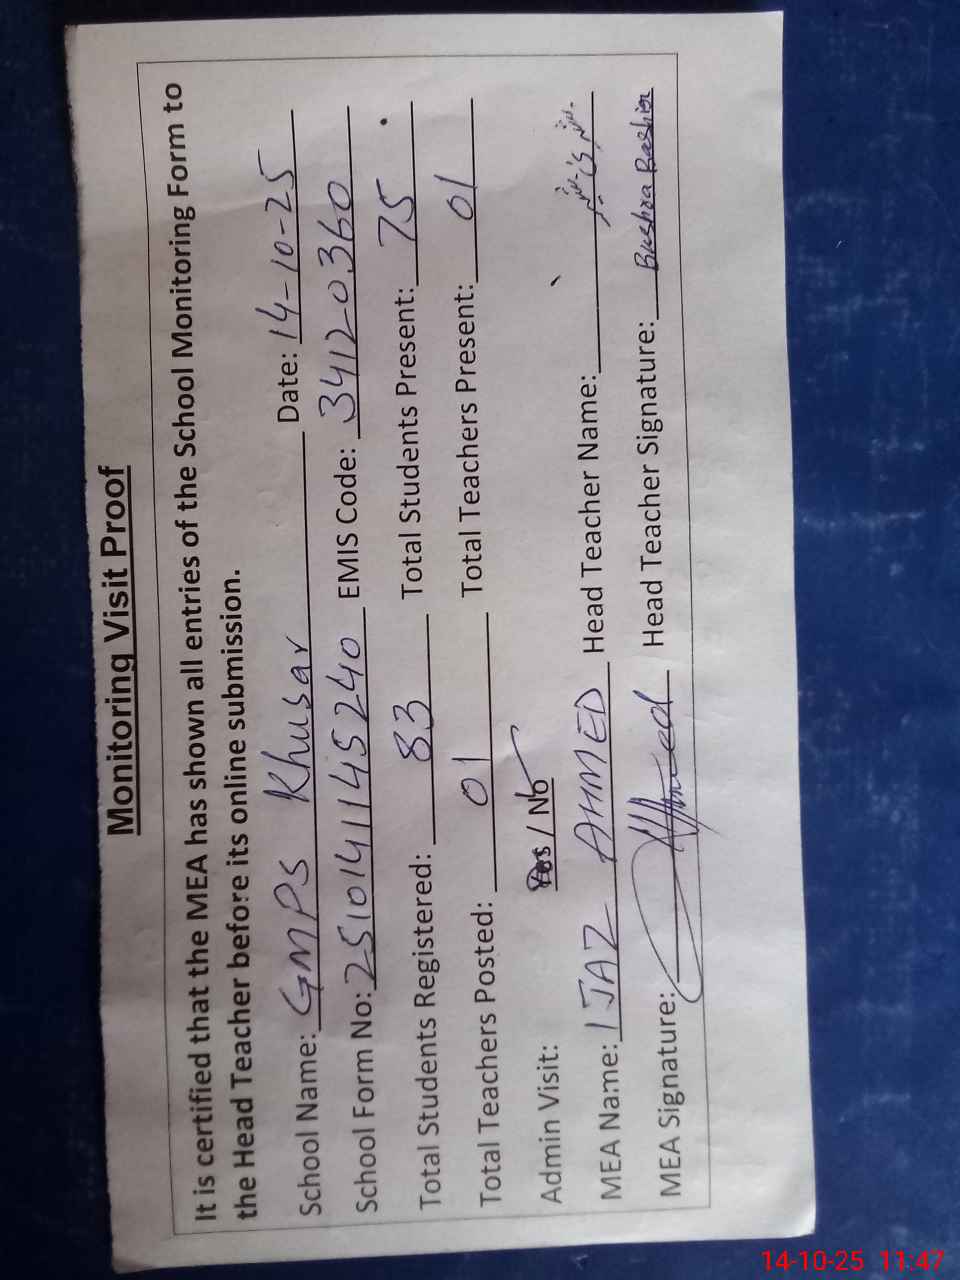 Monitoring Visit Proof
It is certified that the MEA has shown all entries of the School Monitoring Form to
the Head Teacher before its online submission.
School Name: GMPS Khusar Date: 14-10-25
School Form No: 2510141145240 EMIS Code: 34120360
Total Students Registered: 83 Total Students Present: 75
Total Teachers Posted: 01 Total Teachers Present: 01
Admin Visit: Yes / No
MEA Name: IJAZ AHMED Head Teacher Name:
MEA Signature: Ahmed Head Teacher Signature: Bushra Bashir
14-10-25 11:47